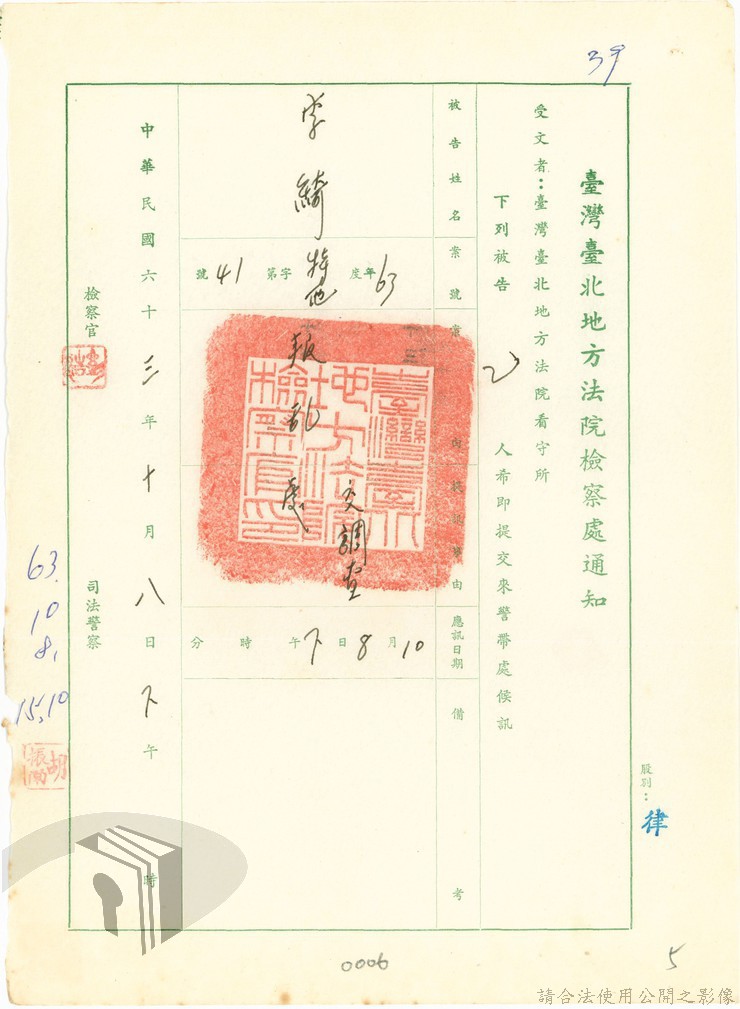 39
臺灣臺北地方法院檢察處通知
受文者：臺灣臺北地方法院看守所
下列被告 乙 人希即提交來警帶處候訊
股別：律
被告姓名
案號
案
由
應訊日期
備考
63年度特他字第41號
叛亂
交調查
10月8日下午 時 分
中華民國六十三年十月八日下午 時
檢察官
司法警察
臺灣臺北地方法院檢察官印
63.
10
8.
15,10
胡
0006
5
請合法使用公開之影像